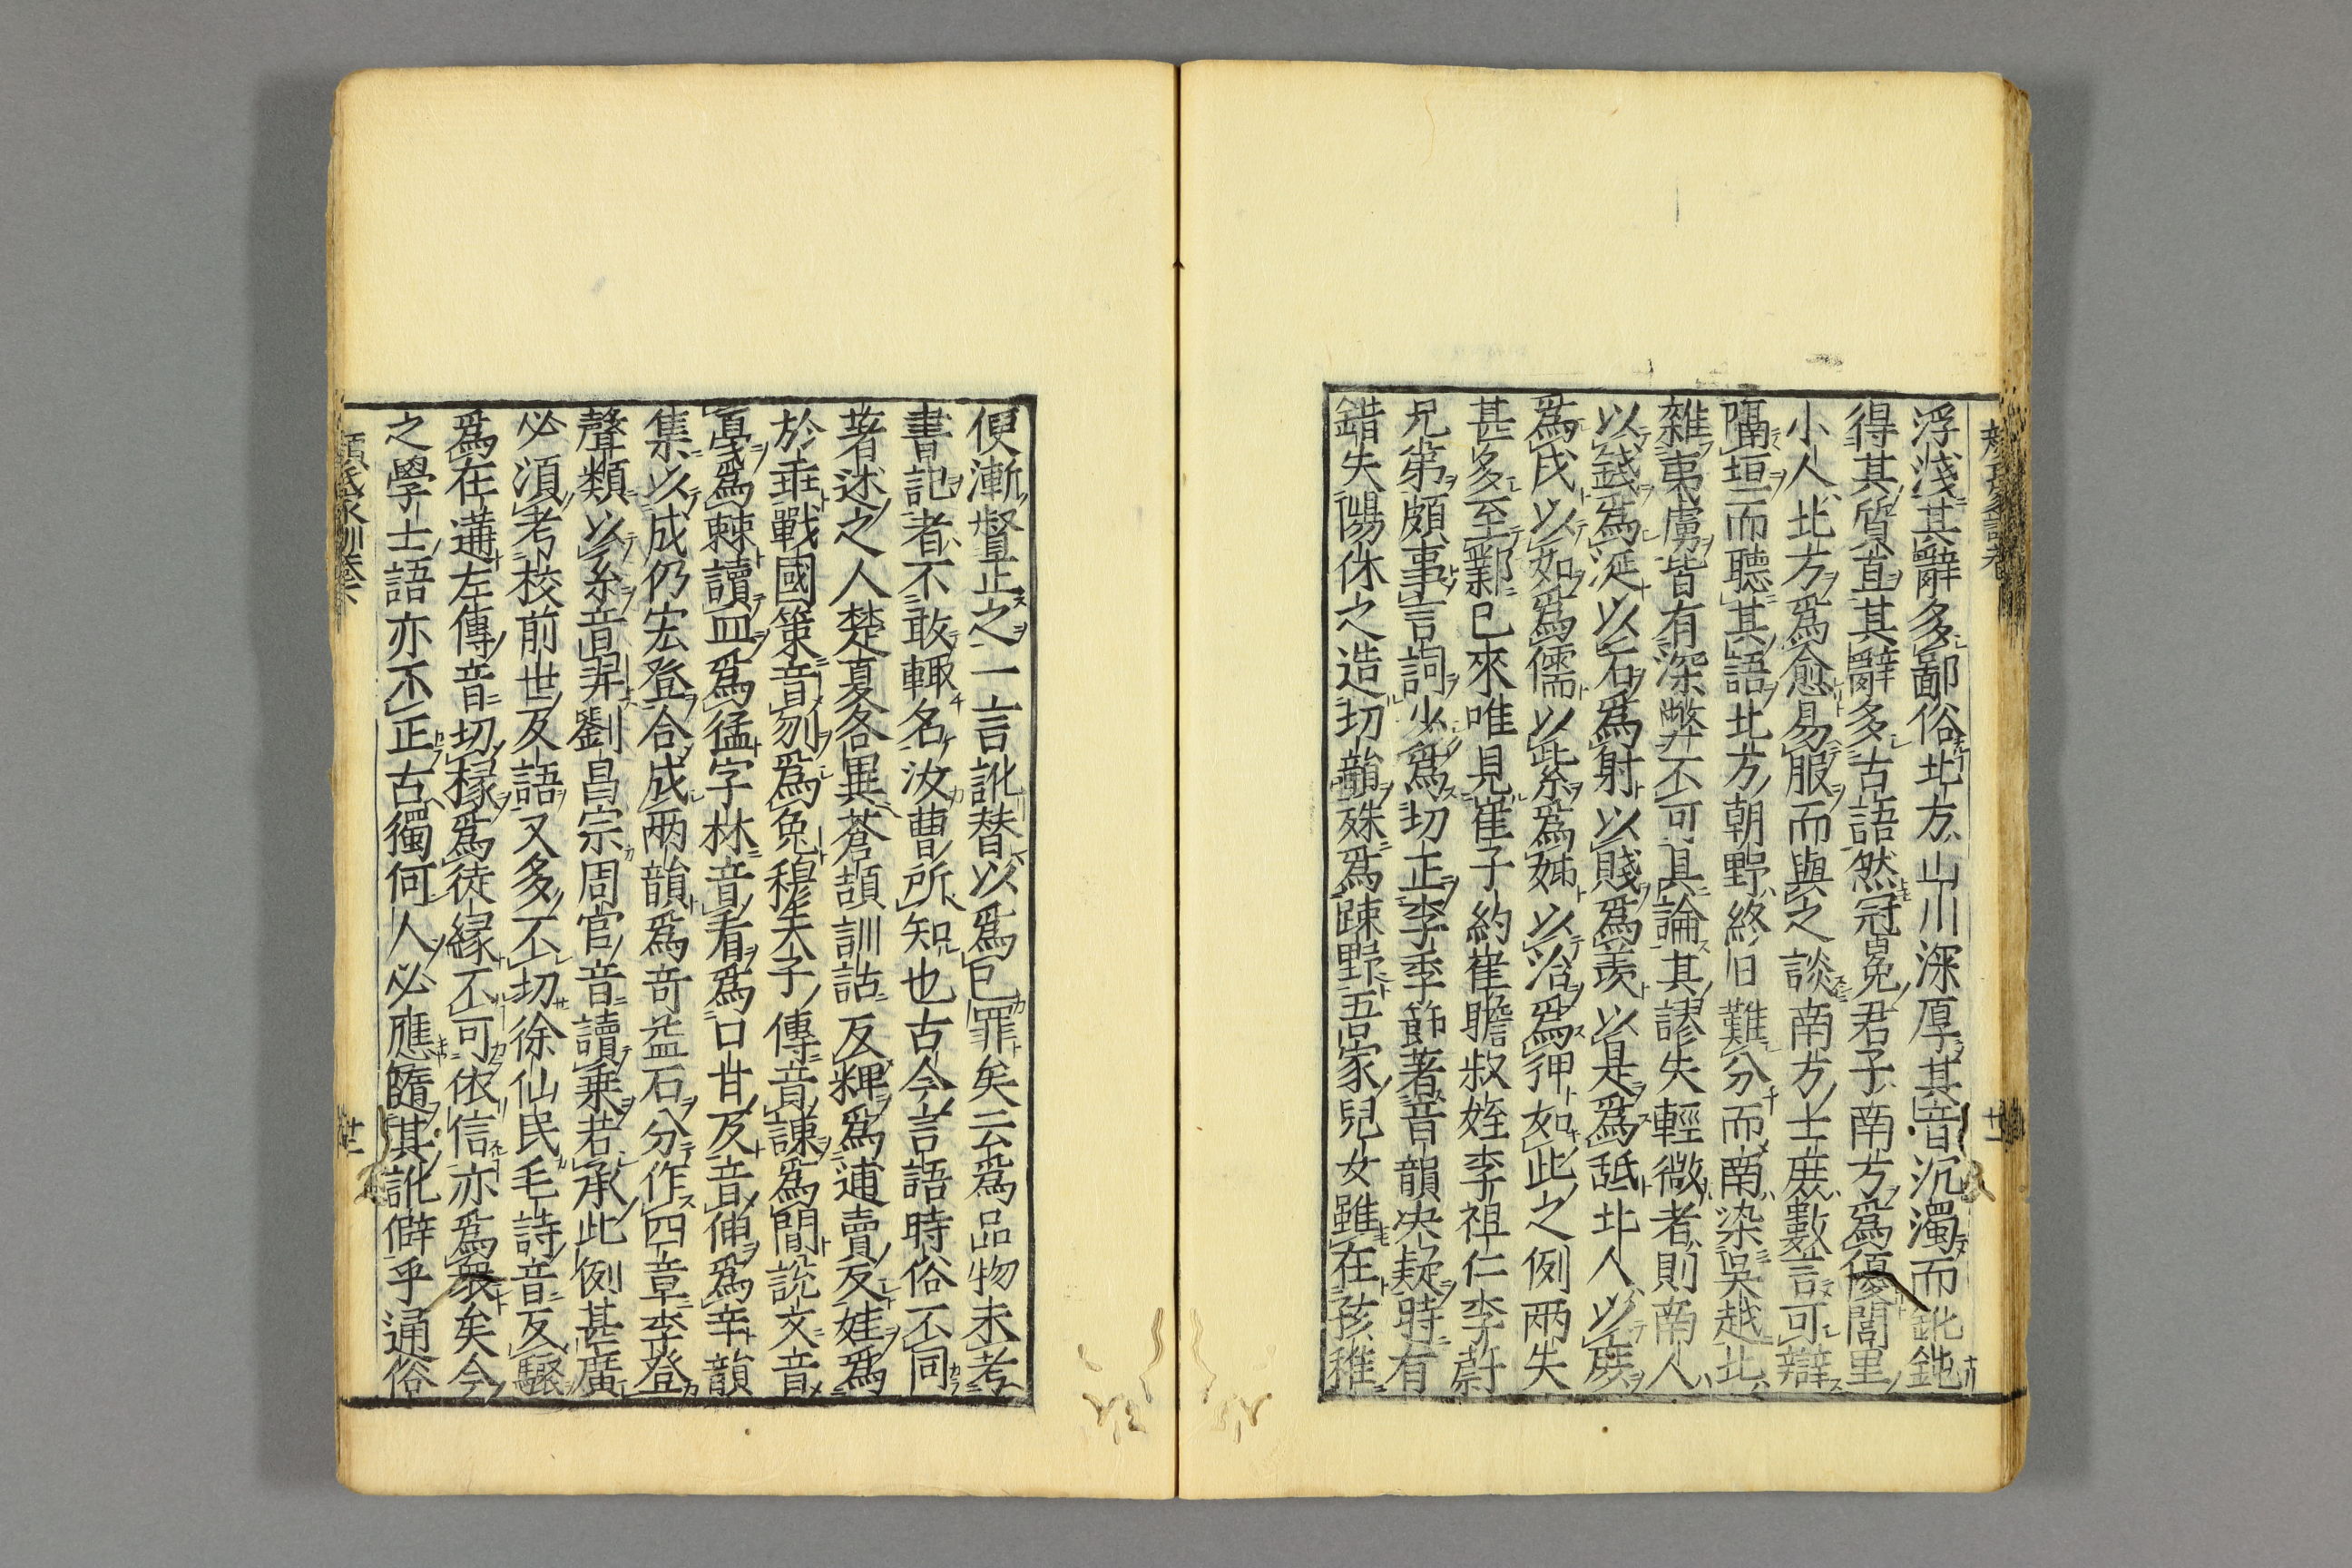 浮淺其辭多鄙俗北方山川深厚其音沉濁而訛鈍
得其質直其辭多古語然冠冕君子南方爲優閭里
小人北方爲愈易服而與之談南方士庶數言可辯
隔垣而聽其語北方朝野終日難分而南染吳越北
雜夷虜皆有深弊不可具論其謬失輕微者則南人
以錢爲涎以石爲射以賤爲羨以是爲舐北人以庶
爲戍以如爲儒以紫爲姊以洽爲狎如此之例兩失
甚多至鄴已來唯見崔子約崔瞻叔姪李祖仁李蔚
兄弟頗事言詞少爲切正李季節著音韻决疑時有
錯失陽休之造切韻殊爲踈野吾家兒女雖在孩稚
便漸督正之一言訛替以爲已罪矣云爲品物未考
書記者不敢輙名汝曹所知也古今言語時俗不同
著述之人楚夏各異蒼頡訓詁反粺爲逋賣反娃爲
於乖戰國策音刎爲免穆天子傳音諫爲間說文音
戛爲棘讀皿爲猛字林音看爲口甘反音伸爲辛韻
集以成仍宏登合成兩韻爲奇益石分作四章李登
聲類以系音羿劉昌宗周官音讀乗若承此例甚廣
必須考校前世反語又多不切徐仙民毛詩音反驟
爲在遘左傳音切椽爲徒緣不可依信亦爲衆矣今
之學士語亦不正古獨何人必應隨其訛僻乎通俗
顏氏家訓卷下 廿二